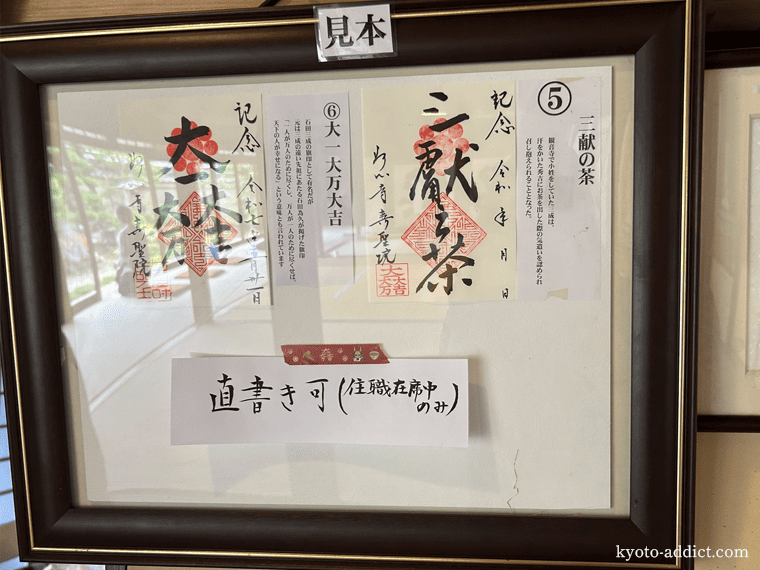 見本
⑤ 三献の茶
観音寺で小姓をしていた三成は、
汗をかいた秀吉にお茶を出した際の気遣いを認められ
召し抱えられることとなった。
記念 令和 年 月 日
三献之茶
妙心寺 壽聖院
⑥大一大万大吉
石田三成の旗印として有名だが
元は三成の遠い先祖にあたる石田為久が掲げた旗印
「一人が万人のために尽くし、万人が一人のために尽くせば、
天下の人が幸せになる」という意味とも言われています
記念 令和七年
大一大万大吉
妙心寺 壽聖院
直書き可(住職在席中
のみ)
kyoto-addict.com